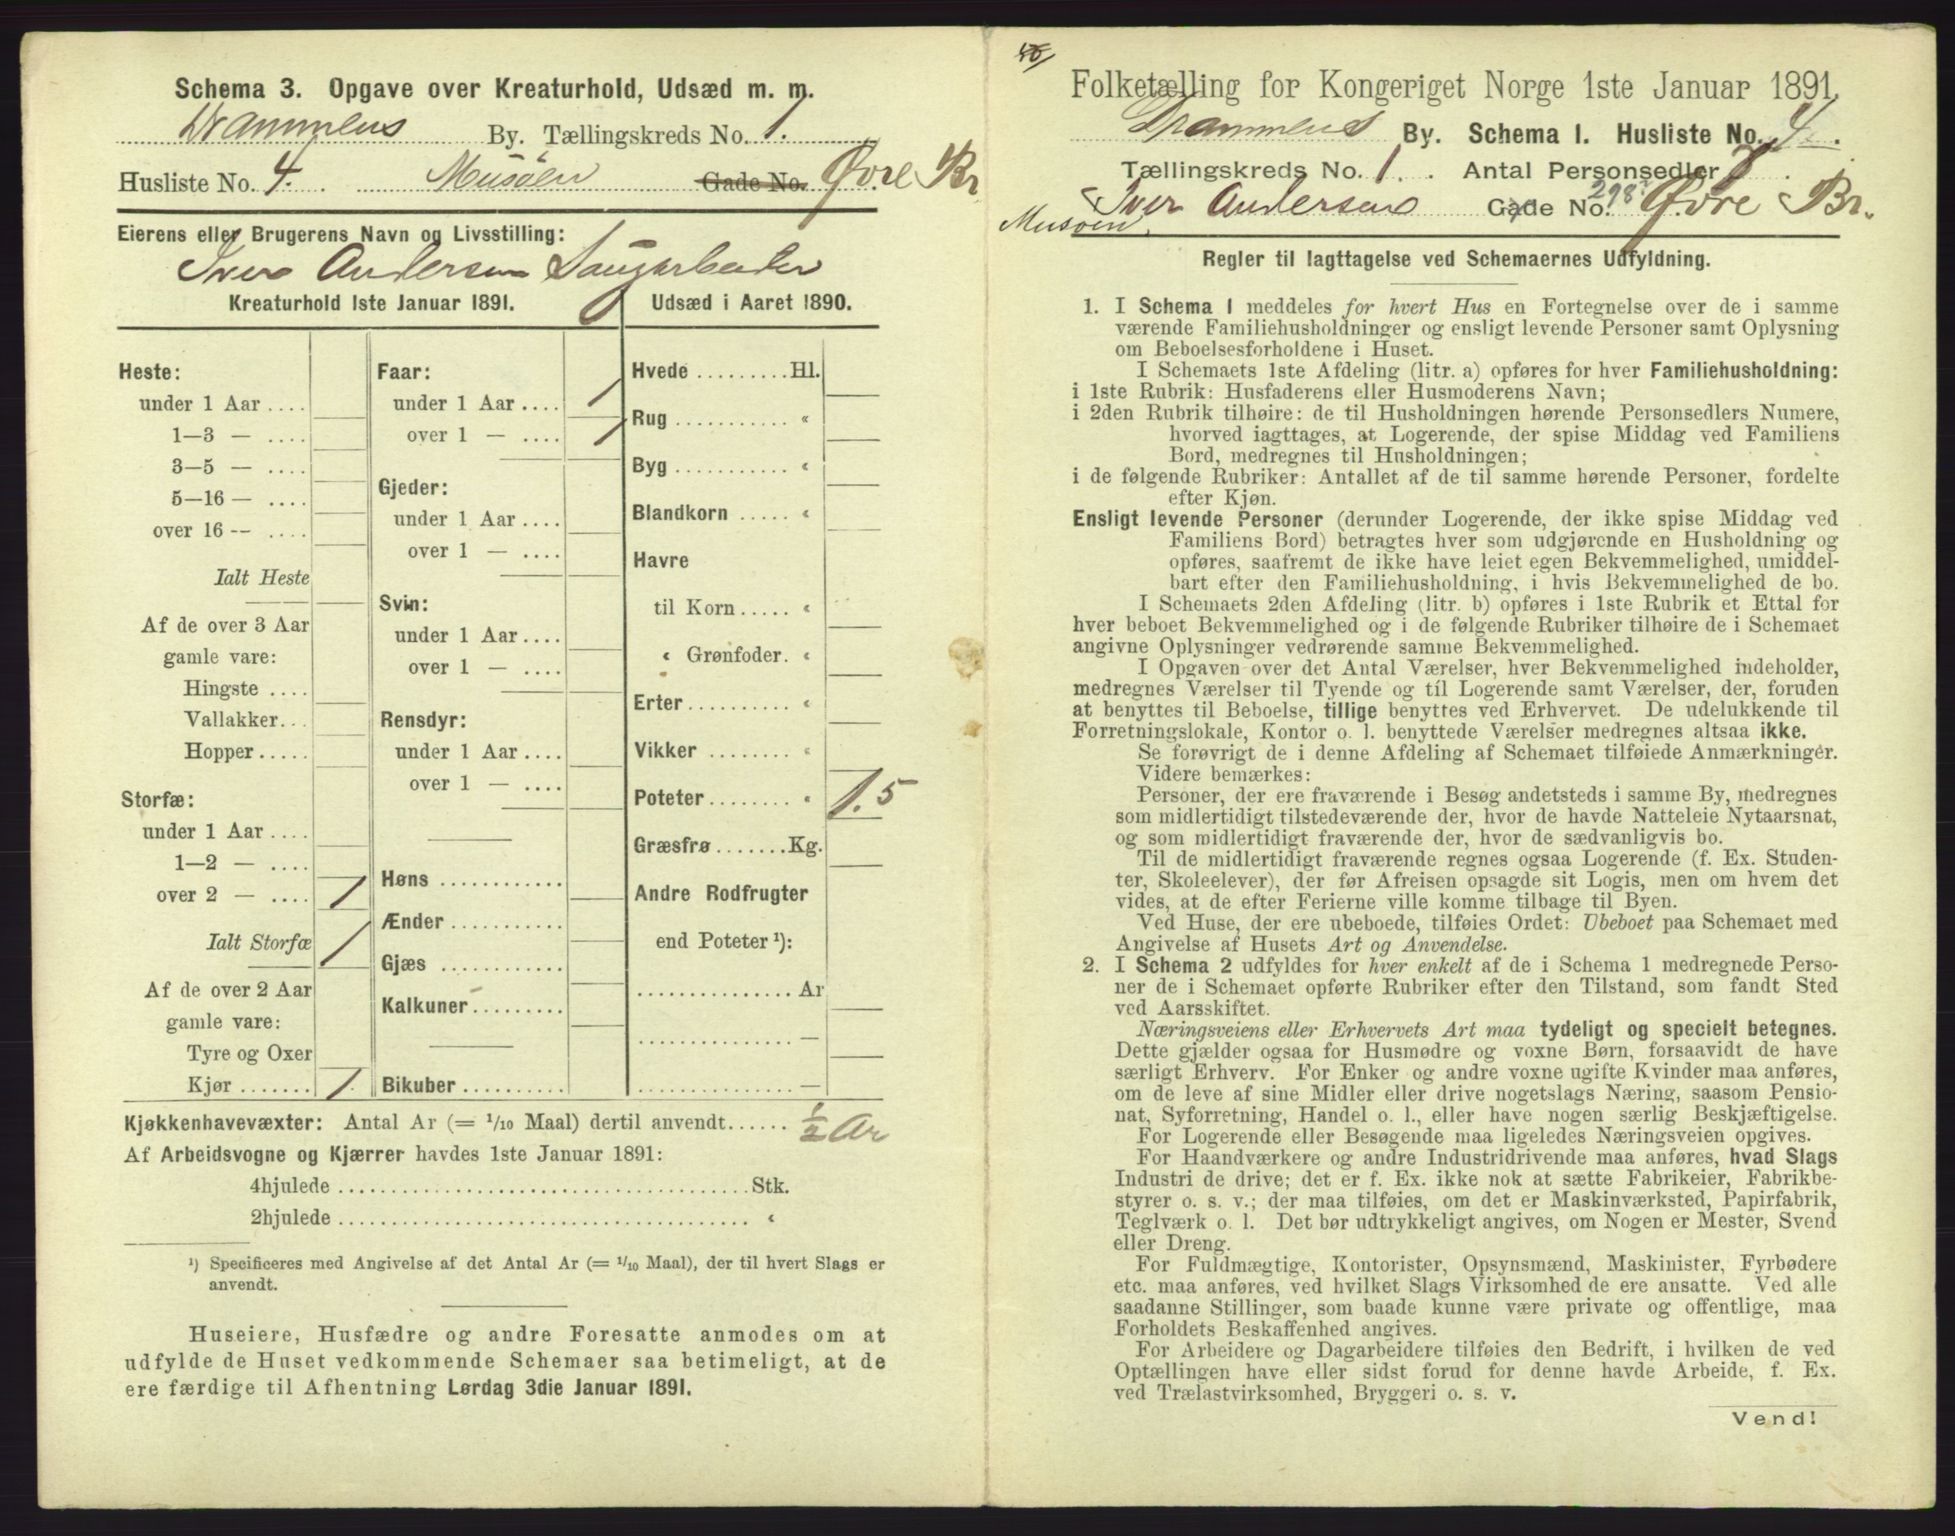 Schema 3. Opgave over Kreaturhold, Udsæd m. m.
Drammens By. Tællingskreds No. 1.
Husliste No. 4. Musøen Gade No. Øvre Br
Eierens eller Brugerens Navn og Livsstilling:
Iver Andersen Saugarbeider
Kreaturhold 1ste Januar 1891.
Heste:
under 1 Aar ....
1—3 — ....
3—5 — ....
5—16 — ....
over 16 — ....
Ialt Heste
Af de over 3 Aar
gamle vare:
Hingste ....
Vallakker...
Hopper .....
Storfæ:
under 1 Aar ....
1—2 — ....
over 2 — .... 1
Ialt Storfæ 1
Af de over 2 Aar
gamle vare:
Tyre og Oxer
Kjør ....... 1.
Faar:
under 1 Aar .... 1
over 1 — .... 1
Gjeder:
under 1 Aar ....
over 1 — ....
Svin:
under 1 Aar ....
over 1 — ....
Rensdyr:
under 1 Aar ....
over 1 — ....
Høns ............
Ænder ...........
Gjæs ............
Kalkuner .........
Bikuber ..........
Udsæd i Aaret 1890.
Hvede ......... Hl.
Rug ........... «
Byg ........... «
Blandkorn ..... «
Havre
til Korn ..... «
« Grønfoder. «
Erter .......... «
Vikker ......... «
Poteter ........ « 1.5
Græsfrø ....... Kg.
Andre Rodfrugter
end Poteter ¹):
............... Ar
............... —
............... —
Kjøkkenhavevæxter: Antal Ar (= 1/10 Maal) dertil anvendt...... ½ Ar
Af Arbeidsvogne og Kjærrer havdes 1ste Januar 1891:
4hjulede ........................................ Stk.
2hjulede ........................................ «
¹) Specificeres med Angivelse af det Antal Ar (= 1/10 Maal), der til hvert Slags er
anvendt.
Huseiere, Husfædre og andre Foresatte anmodes om at
udfylde de Huset vedkommende Schemaer saa betimeligt, at de
ere færdige til Afhentning Lørdag 3die Januar 1891.
Folketælling for Kongeriget Norge 1ste Januar 1891.
Drammens By. Schema 1. Husliste No. 4.
Tællingskreds No. 1. Antal Personsedler 7
Iver Andersens Gade No. 298 Øvre Br.
Musøen
Regler til Iagttagelse ved Schemaernes Udfyldning.
1. I Schema 1 meddeles for hvert Hus en Fortegnelse over de i samme
værende Familiehusholdninger og ensligt levende Personer samt Oplysning
om Beboelsesforholdene i Huset.
I Schemaets 1ste Afdeling (litr. a) opføres for hver Familiehusholdning:
i 1ste Rubrik: Husfaderens eller Husmoderens Navn;
i 2den Rubrik tilhøire: de til Husholdningen hørende Personsedlers Numere,
hvorved iagttages, at Logerende, der spise Middag ved Familiens
Bord, medregnes til Husholdningen;
i de følgende Rubriker: Antallet af de til samme hørende Personer, fordelte
efter Kjøn.
Ensligt levende Personer (derunder Logerende, der ikke spise Middag ved
Familiens Bord) betragtes hver som udgjørende en Husholdning og
opføres, saafremt de ikke have leiet egen Bekvemmelighed, umiddel-
bart efter den Familiehusholdning, i hvis Bekvemmelighed de bo.
I Schemaets 2den Afdeling (litr. b) opføres i 1ste Rubrik et Ettal for
hver beboet Bekvemmelighed og i de følgende Rubriker tilhøire de i Schemaet
angivne Oplysninger vedrørende samme Bekvemmelighed.
I Opgaven over det Antal Værelser, hver Bekvemmelighed indeholder,
medregnes Værelser til Tyende og til Logerende samt Værelser, der, foruden
at benyttes til Beboelse, tillige benyttes ved Erhvervet. De udelukkende til
Forretningslokale, Kontor o. l. benyttede Værelser medregnes altsaa ikke.
Se forøvrigt de i denne Afdeling af Schemaet tilføiede Anmærkninger.
Videre bemærkes:
Personer, der ere fraværende i Besøg andetsteds i samme By, medregnes
som midlertidigt tilstedeværende der, hvor de havde Natteleie Nytaarsnat,
og som midlertidigt fraværende der, hvor de sædvanligvis bo.
Til de midlertidigt fraværende regnes ogsaa Logerende (f. Ex. Studen-
ter, Skoleelever), der før Afreisen opsagde sit Logis, men om hvem det
vides, at de efter Ferierne ville komme tilbage til Byen.
Ved Huse, der ere ubeboede, tilføies Ordet: Ubeboet paa Schemaet med
Angivelse af Husets Art og Anvendelse.
2. I Schema 2 udfyldes for hver enkelt af de i Schema 1 medregnede Perso-
ner de i Schemaet opførte Rubriker efter den Tilstand, som fandt Sted
ved Aarsskiftet.
Næringsveiens eller Erhvervets Art maa tydeligt og specielt betegnes.
Dette gjælder ogsaa for Husmødre og voxne Børn, forsaavidt de have
særligt Erhverv. For Enker og andre voxne ugifte Kvinder maa anføres,
om de leve af sine Midler eller drive nogetslags Næring, saasom Pensio-
nat, Syforretning, Handel o. l., eller have nogen særlig Beskjæftigelse.
For Logerende eller Besøgende maa ligeledes Næringsveien opgives.
For Haandværkere og andre Industridrivende maa anføres, hvad Slags
Industri de drive; det er f. Ex. ikke nok at sætte Fabrikeier, Fabrikbe-
styrer o. s. v.; der maa tilføies, om det er Maskinværksted, Papirfabrik,
Teglværk o. l. Det bør udtrykkeligt angives, om Nogen er Mester, Svend
eller Dreng.
For Fuldmægtige, Kontorister, Opsynsmænd, Maskinister, Fyrbødere
etc. maa anføres, ved hvilket Slags Virksomhed de ere ansatte. Ved alle
saadanne Stillinger, som baade kunne være private og offentlige, maa
Forholdets Beskaffenhed angives.
For Arbeidere og Dagarbeidere tilføies den Bedrift, i hvilken de ved
Optællingen have eller sidst forud for denne havde Arbeide, f. Ex.
ved Trælastvirksomhed, Bryggeri o. s. v.
Vend!